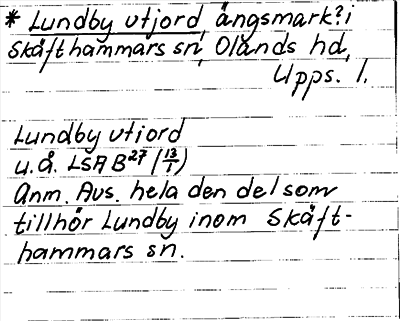 * Lundby utjord, ängsmark? i
Skäfthammars sn, Olands hd,
Upps. l.
Lundby utjord
u.å. LSA B27 (13/1)
Anm. Avs. hela den del som
tillhör Lundby inom Skäft-
hammars sn.